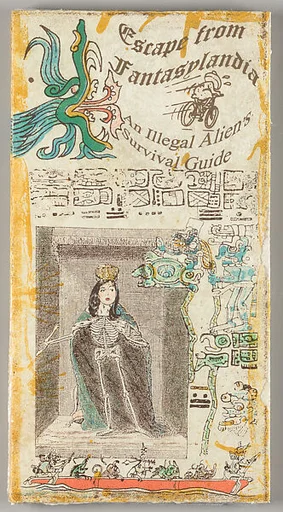 Escape from
Fantasylandia
An Illegal Alien's
Survival Guide